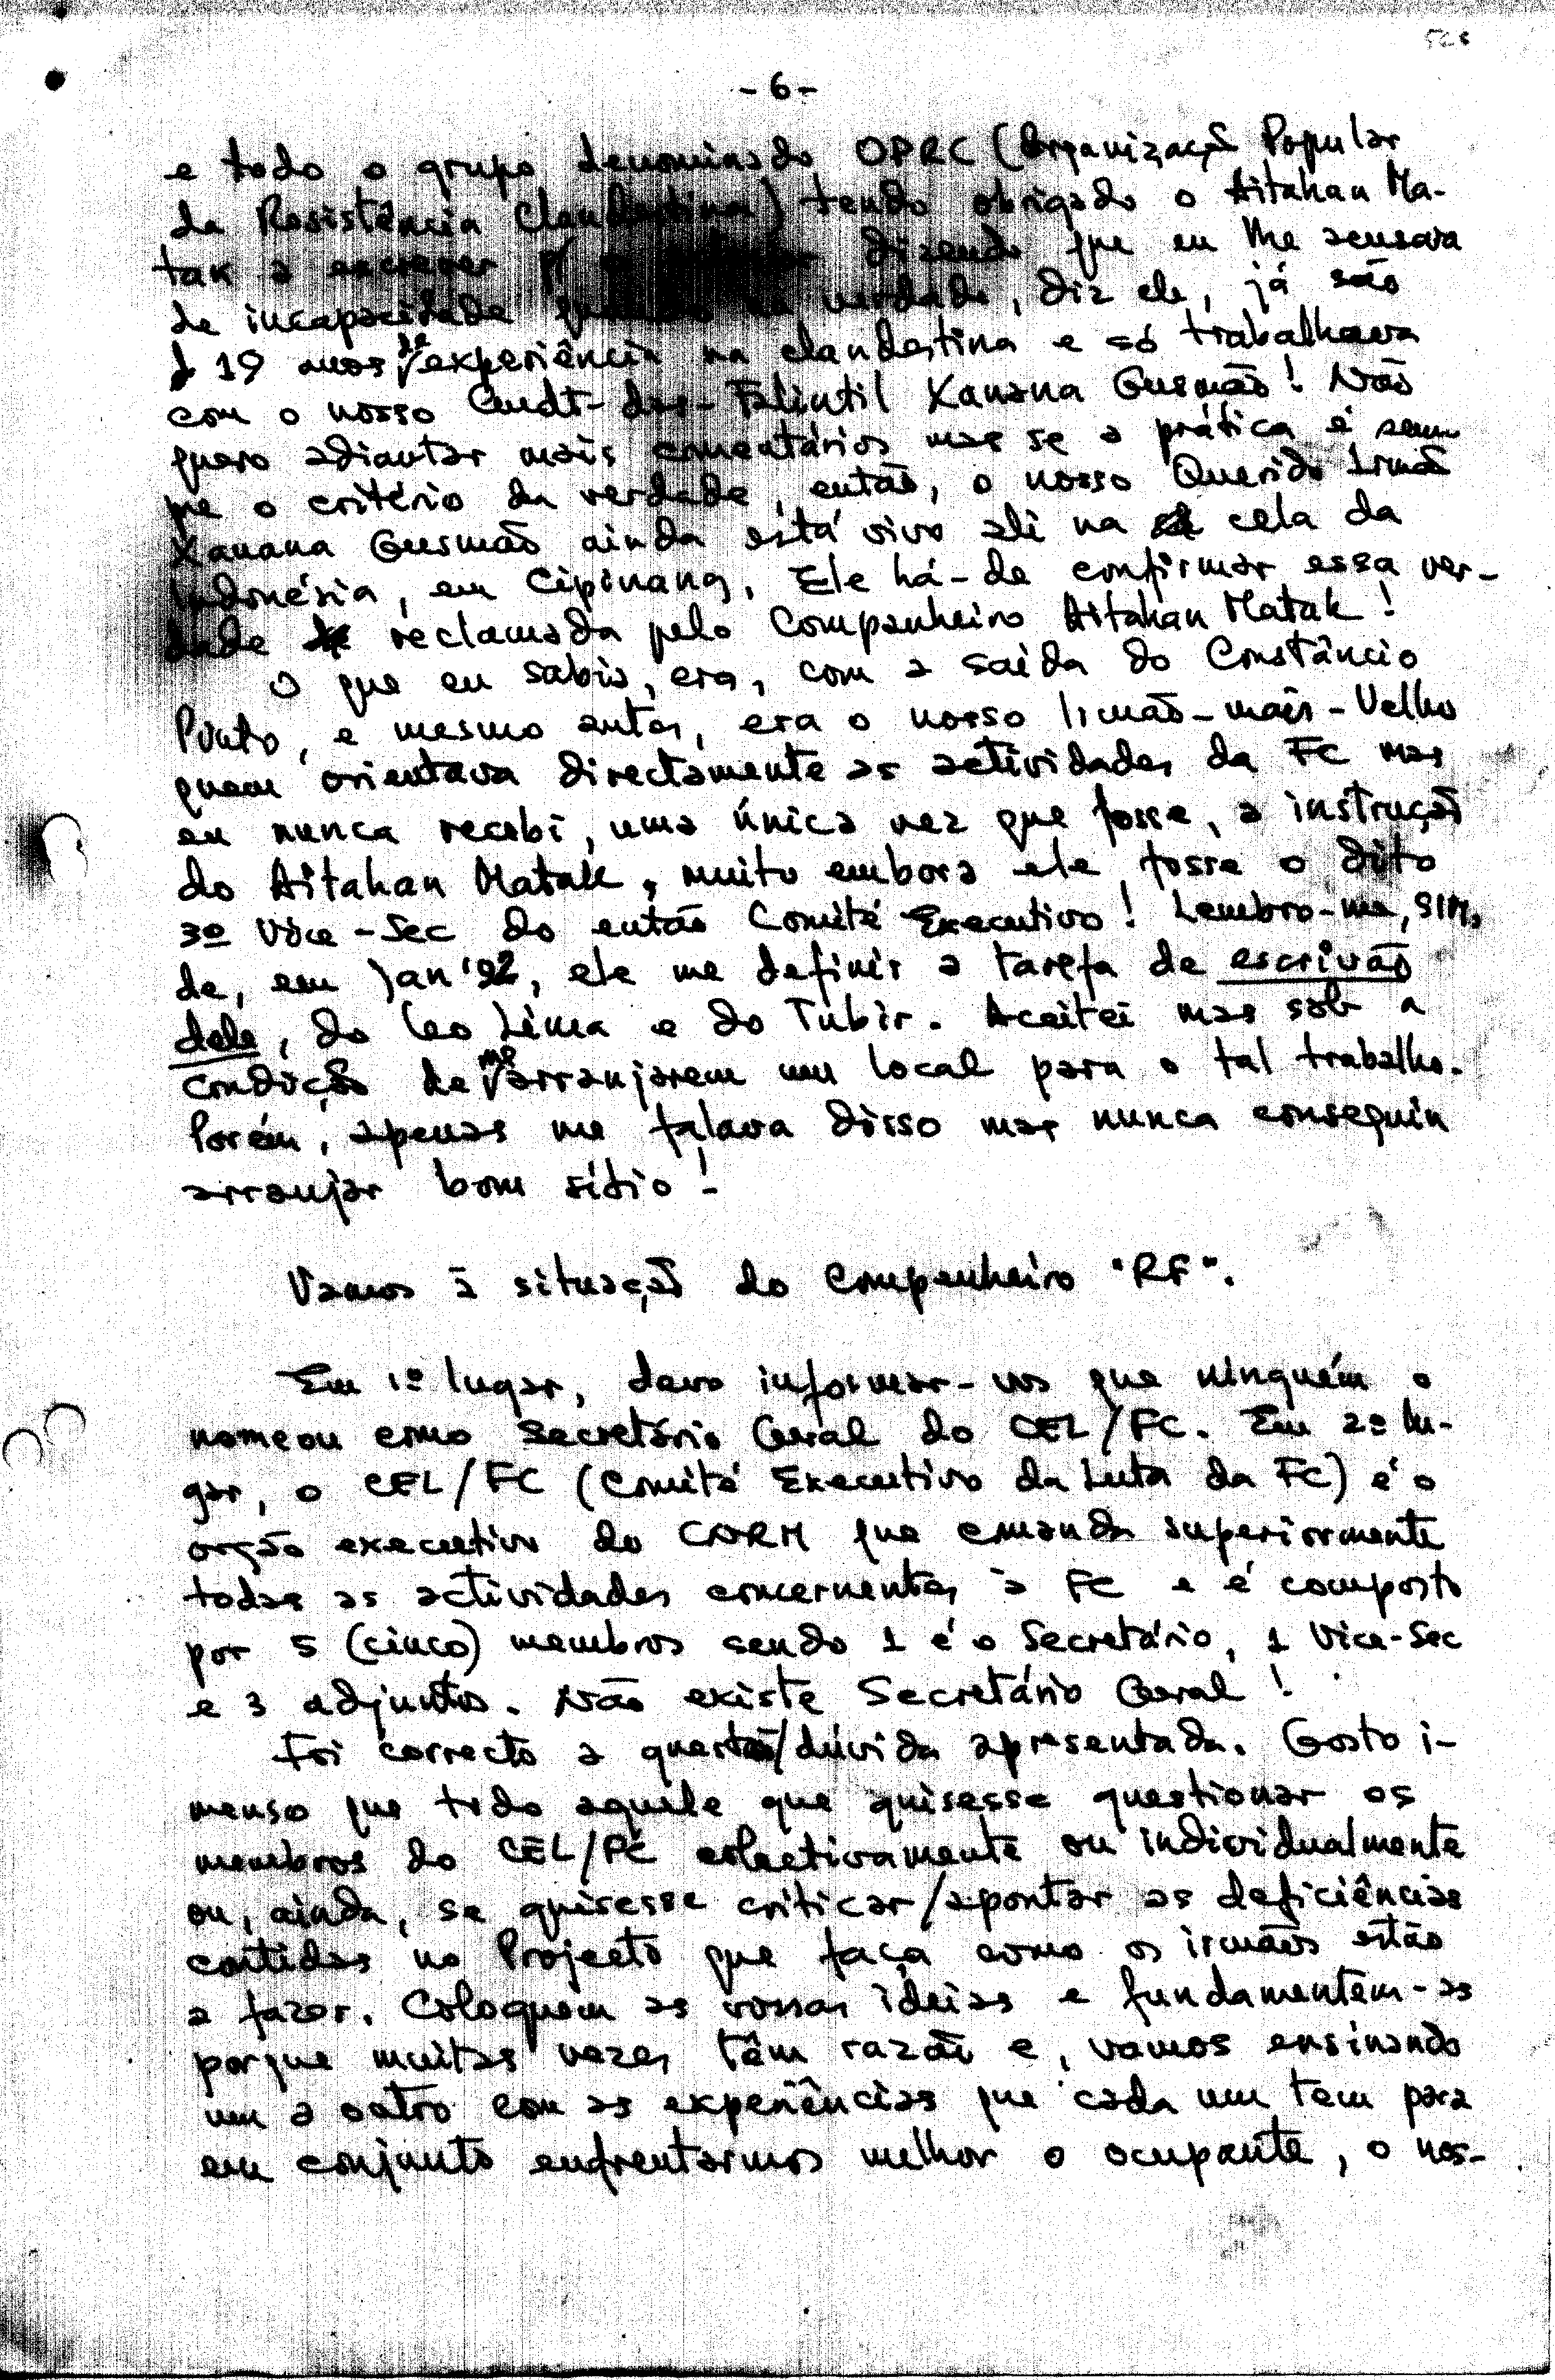 - 6 -
e todo o grupo denominado OPRC (Organização Popular
da Resistência Clandestina) tendo obrigado o Aitahan Ma-
tak a escrever p/ dizendo que eu lhe acusara
de incapacidade quando na verdade, diz ele, já são
19 anos de experiência na clandestina e só trabalhava
com o nosso Cmdt-das-Falintil Xanana Gusmão! Não
quero adiantar mais comentários mas se a prática é sem-
pre o critério da verdade, então, o nosso Querido Irmão
Xanana Gusmão ainda está vivo ali na cela da
Indonésia, em Cipinang. Ele há-de confirmar essa ver-
dade reclamada pelo Companheiro Aitahan Matak!
O que eu sabia, era, com a saída do Constâncio
Pinto, e mesmo antes, era o nosso Irmão-mais-Velho
quem orientava directamente as actividades da FC mas
eu nunca recebi, uma única vez que fosse, a instrução
do Aitahan Matak, muito embora ele fosse o dito
3º Vice-Sec do então Comité Executivo! Lembro-me, SIM,
de, em Jan '92, ele me definir a tarefa de escrivão
dele, do Leo Lima e do Tubir. Aceitei mas sob a
condição de me arranjarem um local para o tal trabalho.
Porém, apenas me falava disso mas nunca conseguiu
arranjar bom sítio!
Vamos à situação do Companheiro "RF".
Em 1º lugar, devo informar-vos que ninguém o
nomeou como Secretário Geral do CEL/FC. Em 2º lu-
gar, o CEL/FC (Comité Executivo da Luta da FC) é o
orgão executivo do CNRM que comanda superiormente
todas as actividades concernentes à FC e é composto
por 5 (cinco) membros sendo 1 é o Secretário, 1 Vice-Sec
e 3 adjuntos. Não existe Secretário Geral!
Foi correcto a questão/dúvida apresentada. Gosto i-
menso que todo aquele que quisesse questionar os
membros do CEL/FC colectivamente ou individualmente
ou, ainda, se quisesse criticar/apontar as deficiências
contidas no Projecto que faça como os irmãos estão
a fazer. Coloquem as vossas ideias e fundamentem-as
porque muitas vezes têm razão e, vamos ensinando
um a outro com as experiências que cada um tem para
em conjunto enfrentarmos melhor o ocupante, o nos-